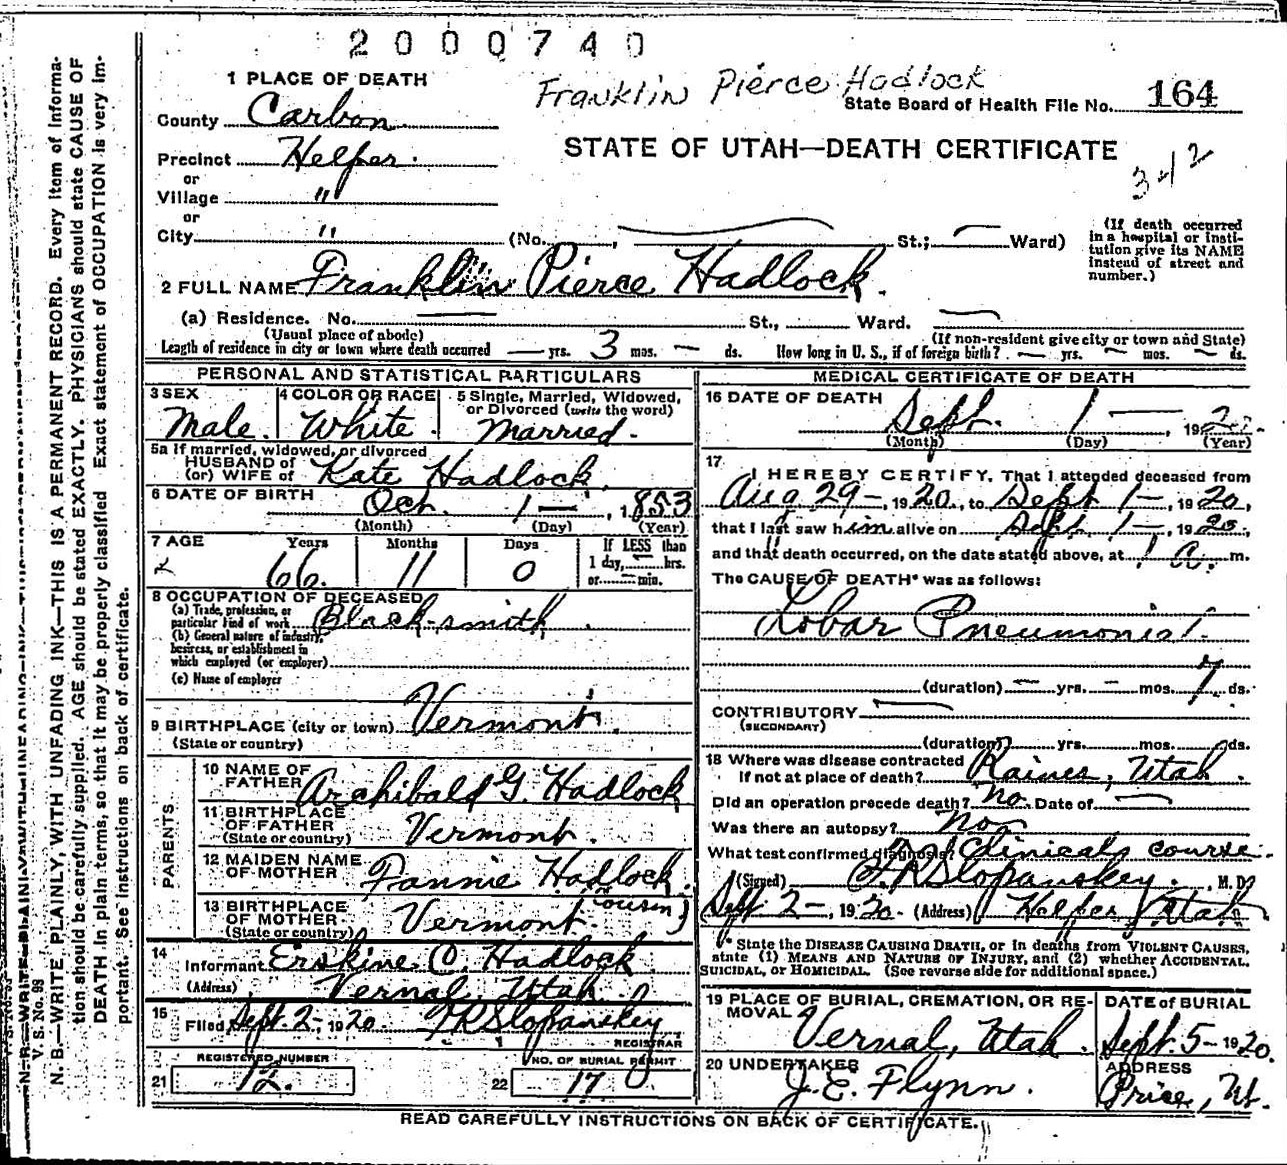 2000740
Franklin Pierce Hadlock
1 PLACE OF DEATH
State Board of Health File No. 164
County Carbon
STATE OF UTAH—DEATH CERTIFICATE
342
Precinct Helper.
or
Village "
or
City " (No. , St.; Ward)
(If death occurred in a hospital or insti-
tution give its NAME
instead of street and
number.)
2 FULL NAME Franklin Pierce Hadlock.
(a) Residence. No. St., Ward.
(Usual place of abode) (If non-resident give city or town and State)
Length of residence in city or town where death occurred — yrs. 3 mos. — ds. How long in U. S., if of foreign birth? — yrs. — mos. — ds.
PERSONAL AND STATISTICAL PARTICULARS
3 SEX 4 COLOR OR RACE 5 Single, Married, Widowed,
or Divorced (write the word)
Male. White. Married.
5a If married, widowed, or divorced
HUSBAND of
(or) WIFE of Kate Hadlock.
6 DATE OF BIRTH Oct. 1 — , 1853
(Month) (Day) (Year)
7 AGE Years Months Days If LESS than
1 day, — hrs.
or — min.
66. 11 0
8 OCCUPATION OF DECEASED
(a) Trade, profession, or
particular kind of work Black-smith.
(b) General nature of industry,
business, or establishment in
which employed (or employer)
(c) Name of employer
9 BIRTHPLACE (city or town) Vermont.
(State or country)
PARENTS
10 NAME OF
FATHER Archibald G. Hadlock
11 BIRTHPLACE
OF FATHER
(State or country) Vermont.
12 MAIDEN NAME
OF MOTHER Fannie Hadlock.
(cousin)
13 BIRTHPLACE
OF MOTHER
(State or country) Vermont.
14
Informant Erskine C. Hadlock
(Address) Vernal, Utah.
15
Filed Sept. 2-, 1920 Slopanskey
REGISTRAR
REGISTERED NUMBER NO. OF BURIAL PERMIT
21 12. 22 17
MEDICAL CERTIFICATE OF DEATH
16 DATE OF DEATH
Sept. 1 — , 192
(Month) (Day) (Year)
17
I HEREBY CERTIFY, That I attended deceased from
Aug 29 —, 1920, to Sept 1 —, 1920,
that I last saw him alive on Sept 1 —, 1920,
and that death occurred, on the date stated above, at 1 a. m.
The CAUSE OF DEATH* was as follows:
Lobar Pneumonia.
(duration) — yrs. — mos. 7. ds.
CONTRIBUTORY
(SECONDARY)
(duration) yrs. mos. ds.
18 Where was disease contracted
if not at place of death? Rains, Utah.
Did an operation precede death? No. Date of —
Was there an autopsy? No
What test confirmed diagnosis? Clinical course.
(Signed) Slopanskey, M. D.
Sept 2 —, 1920. (Address) Helper Utah
* State the DISEASE CAUSING DEATH, or in deaths from VIOLENT CAUSES,
state (1) MEANS AND NATURE OF INJURY, and (2) whether ACCIDENTAL,
SUICIDAL, or HOMICIDAL. (See reverse side for additional space.)
19 PLACE OF BURIAL, CREMATION, OR RE-
MOVAL
Vernal, Utah.
DATE of BURIAL
Sept. 5 — 1920.
20 UNDERTAKER
J. E. Flynn.
ADDRESS
Price, Ut.
READ CAREFULLY INSTRUCTIONS ON BACK OF CERTIFICATE.
V. S. No. 98
N. B.—WRITE PLAINLY, WITH UNFADING INK—THIS IS A PERMANENT RECORD. Every item of informa-
tion should be carefully supplied. AGE should be stated EXACTLY. PHYSICIANS should state CAUSE OF
DEATH in plain terms, so that it may be properly classified. Exact statement of OCCUPATION is very im-
portant. See instructions on back of certificate.